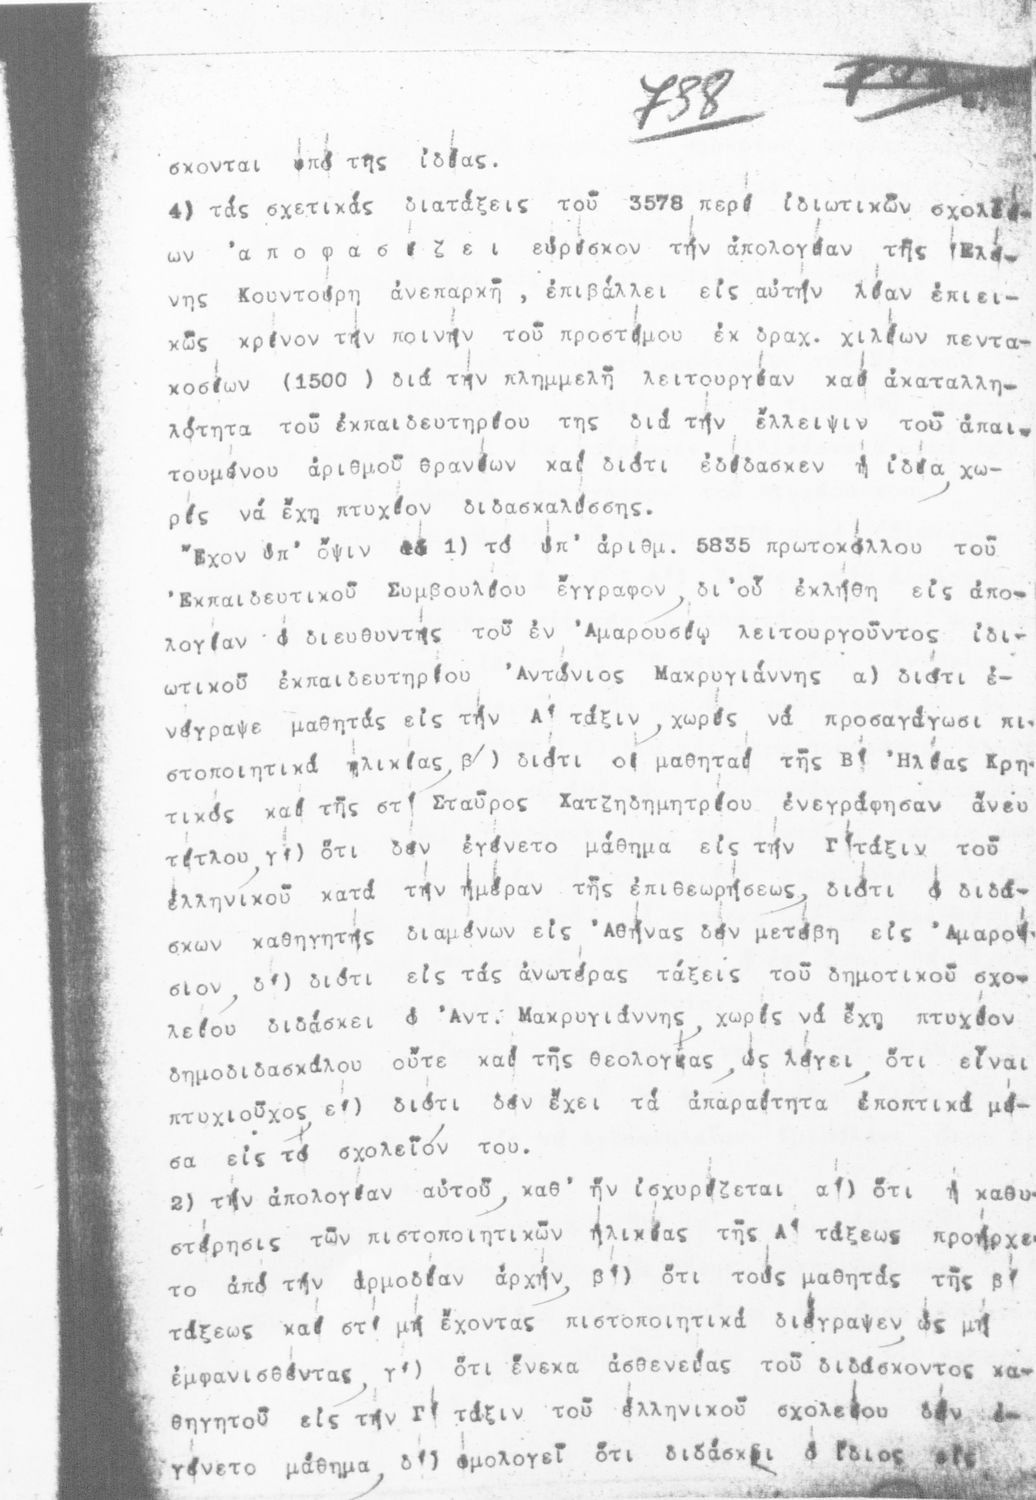 738
σκονται ὑπό τῆς ἰδίας.
4) τάς σχετικάς διατάξεις τοῦ 3578 περί ἰδιωτικῶν σχολεί-
ων ἀ π ο φ α σ ί ζ ε ι εὑρίσκον τήν ἀπολογίαν τῆς Ἑλέ-
νης Κουντούρη ἀνεπαρκῆ , ἐπιβάλλει εἰς αὐτήν λίαν ἐπιει-
κῶς κρίνον τήν ποινήν τοῦ προστίμου ἐκ δραχ. χιλίων πεντα-
κοσίων (1500 ) διά τήν πλημμελῆ λειτουργίαν καί ἀκαταλλη-
λότητα τοῦ ἐκπαιδευτηρίου της διά τήν ἔλλειψιν τοῦ ἀπαι-
τουμένου ἀριθμοῦ θρανίων καί διότι ἐδίδασκεν ἡ ἰδία, χω-
ρίς νά ἔχῃ πτυχίον διδασκαλίσσης.
Ἔχον ὑπ' ὄψιν 1) τό ὑπ' ἀριθμ. 5835 πρωτοκόλλου τοῦ
Ἐκπαιδευτικοῦ Συμβουλίου ἔγγραφον, δι'οὗ ἐκλήθη εἰς ἀπο-
λογίαν ὁ διευθυντής τοῦ ἐν Ἀμαρουσίῳ λειτουργοῦντος ἰδι-
ωτικοῦ ἐκπαιδευτηρίου Ἀντώνιος Μακρυγιάννης α) διότι ἐ-
νέγραψε μαθητάς εἰς τήν Α' τάξιν, χωρίς νά προσαγάγωσι πι-
στοποιητικά ἡλικίας, β') διότι οἱ μαθηταί τῆς Β' Ἠλίας Κρη-
τικός καί τῆς στ' Σταῦρος Χατζηδημητρίου ἐνεγράφησαν ἄνευ
τίτλου, γ') ὅτι δέν ἐγένετο μάθημα εἰς τήν Γ' τάξιν τοῦ
ἑλληνικοῦ κατά τήν ἡμέραν τῆς ἐπιθεωρήσεως, διότι ὁ διδά-
σκων καθηγητής διαμένων εἰς Ἀθήνας δέν μετέβη εἰς Ἀμαρού-
σιον, δ') διότι εἰς τάς ἀνωτέρας τάξεις τοῦ δημοτικοῦ σχο-
λείου διδάσκει ὁ Ἀντ. Μακρυγιάννης, χωρίς νά ἔχῃ πτυχίον
δημοδιδασκάλου οὔτε καί τῆς θεολογίας, ὡς λέγει, ὅτι εἶναι
πτυχιοῦχος, ε') διότι δέν ἔχει τά ἀπαραίτητα ἐποπτικά μέ-
σα εἰς τό σχολεῖόν του.
2) τήν ἀπολογίαν αὐτοῦ, καθ' ἥν ἰσχυρίζεται α') ὅτι ἡ καθυ-
στέρησις τῶν πιστοποιητικῶν ἡλικίας τῆς Α' τάξεως προήρχε-
το ἀπό τήν ἁρμοδίαν ἀρχήν, β') ὅτι τούς μαθητάς τῆς β'
τάξεως καί στ' μή ἔχοντας πιστοποιητικά διέγραψεν, ὡς μή
ἐμφανισθέντας, γ') ὅτι ἕνεκα ἀσθενείας τοῦ διδάσκοντος κα-
θηγητοῦ εἰς τήν Γ' τάξιν τοῦ ἑλληνικοῦ σχολείου δέν ἐ-
γένετο μάθημα, δ') ὁμολογεῖ ὅτι διδάσκει ὁ ἴδιος εἰς